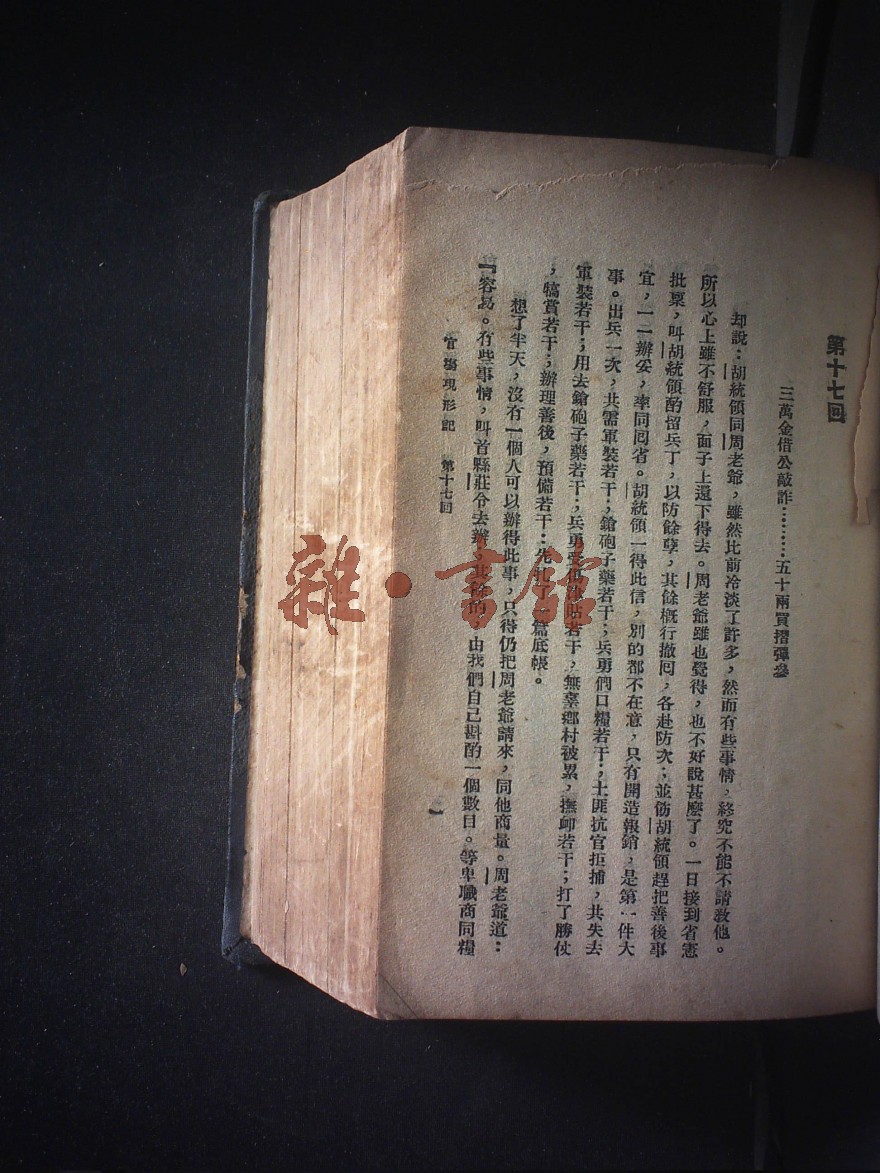 第十七回
三萬金借公敲詐⋯⋯⋯五十兩買摺彈參
却說：胡統領同周老爺，雖然比前冷淡了許多，然而有些事情，終究不能不請教他。
所以心上雖不舒服，面子上還下得去。周老爺雖也覺得，也不好說甚麼了。一日接到省憲
批稟，叫胡統領酌留兵丁，以防餘孽，其餘概行撤囘，各赴防次；並飭胡統領趕把善後事
宜，一一辦妥，率同囘省。胡統領一得此信，別的都不在意，只有開造報銷，是第一件大
事。出兵一次，共需軍裝若干；鎗砲子藥若干；兵勇們口糧若干；土匪抗官拒捕，共失去
軍裝若干；用去鎗砲子藥若干；兵勇受傷津貼若干，無辜鄉村被累，撫卹若干；打了勝仗
，犒賞若干；辦理善後，預備若干：先打了一篇底帳。
想了半天，沒有一個人可以辦得此事，只得仍把周老爺請來，同他商量。周老爺道：
『容易。有些事情，叫首縣莊令去辦，其餘的，由我們自己斟酌一個數目。等卑職商同糧
官場現形記 第十七回 一
雜·書館